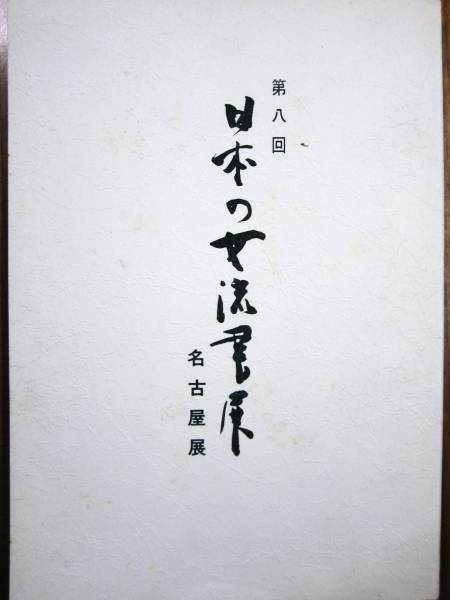 第八回
日本の女流書展
名古屋展